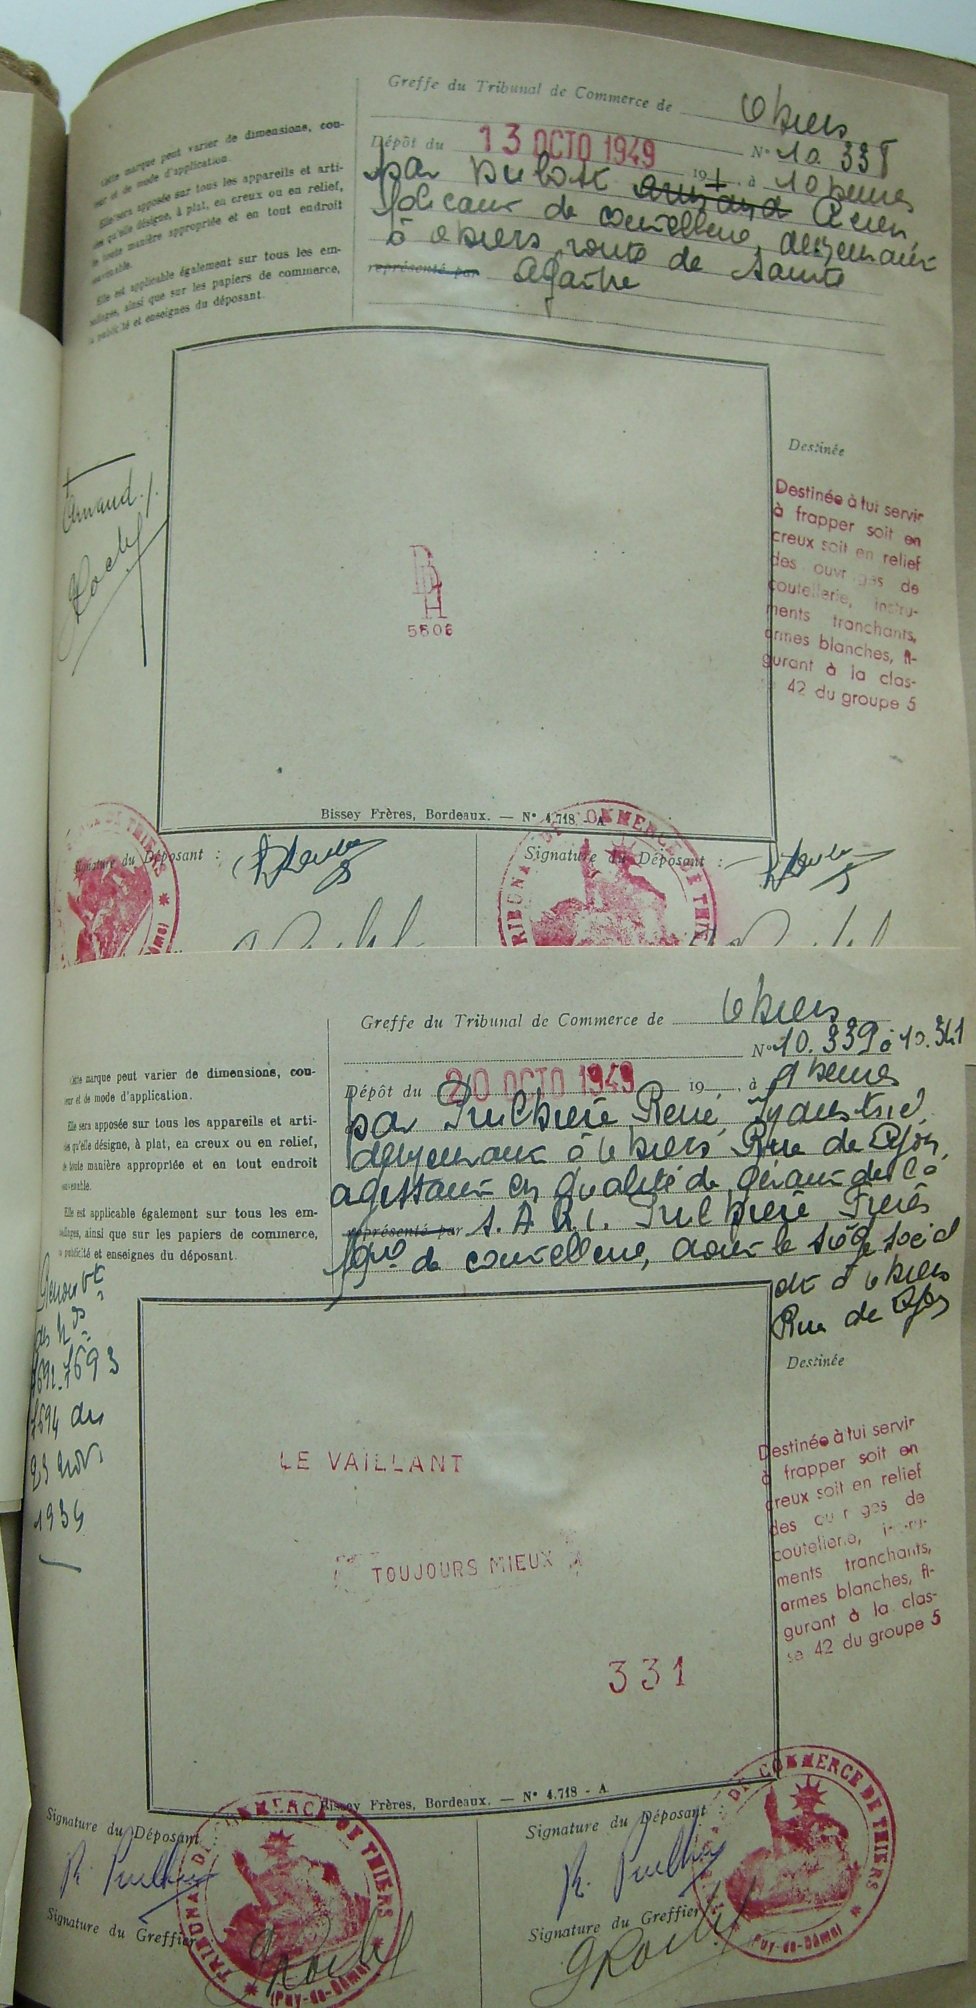 Greffe du Tribunal de Commerce de Thiers
Dépôt du 13 OCTO 1949 N° 10.338
19 , à 10 heures
par Dubost Armand
de coutellerie, demeurant
à Thiers route de Sainte
représenté par Agathe
Cette marque peut varier de dimensions, cou-
leur et de mode d'application.
Elle sera apposée sur tous les appareils et arti-
cles qu'elle désigne, à plat, en creux ou en relief,
de toute manière appropriée et en tout endroit
convenable.
Elle est applicable également sur tous les em-
ballages, ainsi que sur les papiers de commerce,
la publicité et enseignes du déposant.
Armand
DH
5606
Destinée
Destinée à lui servir
à frapper soit en
creux soit en relief
des ouvrages de
coutellerie, instru-
ments tranchants,
armes blanches, fi-
gurant à la clas-
se 42 du groupe 5
Bissey Frères, Bordeaux. — N° 4.718 - A
Signature du Déposant :
Signature du Déposant :
TRIBUNAL DE COMMERCE DE THIERS
Greffe du Tribunal de Commerce de Thiers
N° 10.339 à 10.341
Dépôt du 20 OCTO 1949 19 , à 9 heures
par Pulbière René Industriel
demeurant à Thiers Rue de Lyon,
agissant en qualité de gérant de la
représenté par S.A.R.L. Frères
de coutellerie, dont le siège social
est à Thiers
Rue de Lyon
Cette marque peut varier de dimensions, cou-
leur et de mode d'application.
Elle sera apposée sur tous les appareils et arti-
cles qu'elle désigne, à plat, en creux ou en relief,
de toute manière appropriée et en tout endroit
convenable.
Elle est applicable également sur tous les em-
ballages, ainsi que sur les papiers de commerce,
la publicité et enseignes du déposant.
des Nos
7692-7693
7694 du
23 nov.
1934
LE VAILLANT
TOUJOURS MIEUX
331
Destinée
Destinée à lui servir
à frapper soit en
creux soit en relief
des ouvrages de
coutellerie, instru-
ments tranchants,
armes blanches, fi-
gurant à la clas-
se 42 du groupe 5
Bissey Frères, Bordeaux. — N° 4.718 - A
Signature du Déposant
Signature du Déposant
Signature du Greffier
Signature du Greffier
TRIBUNAL DE COMMERCE DE THIERS
(Puy-de-Dôme)
TRIBUNAL DE COMMERCE DE THIERS
(Puy-de-Dôme)